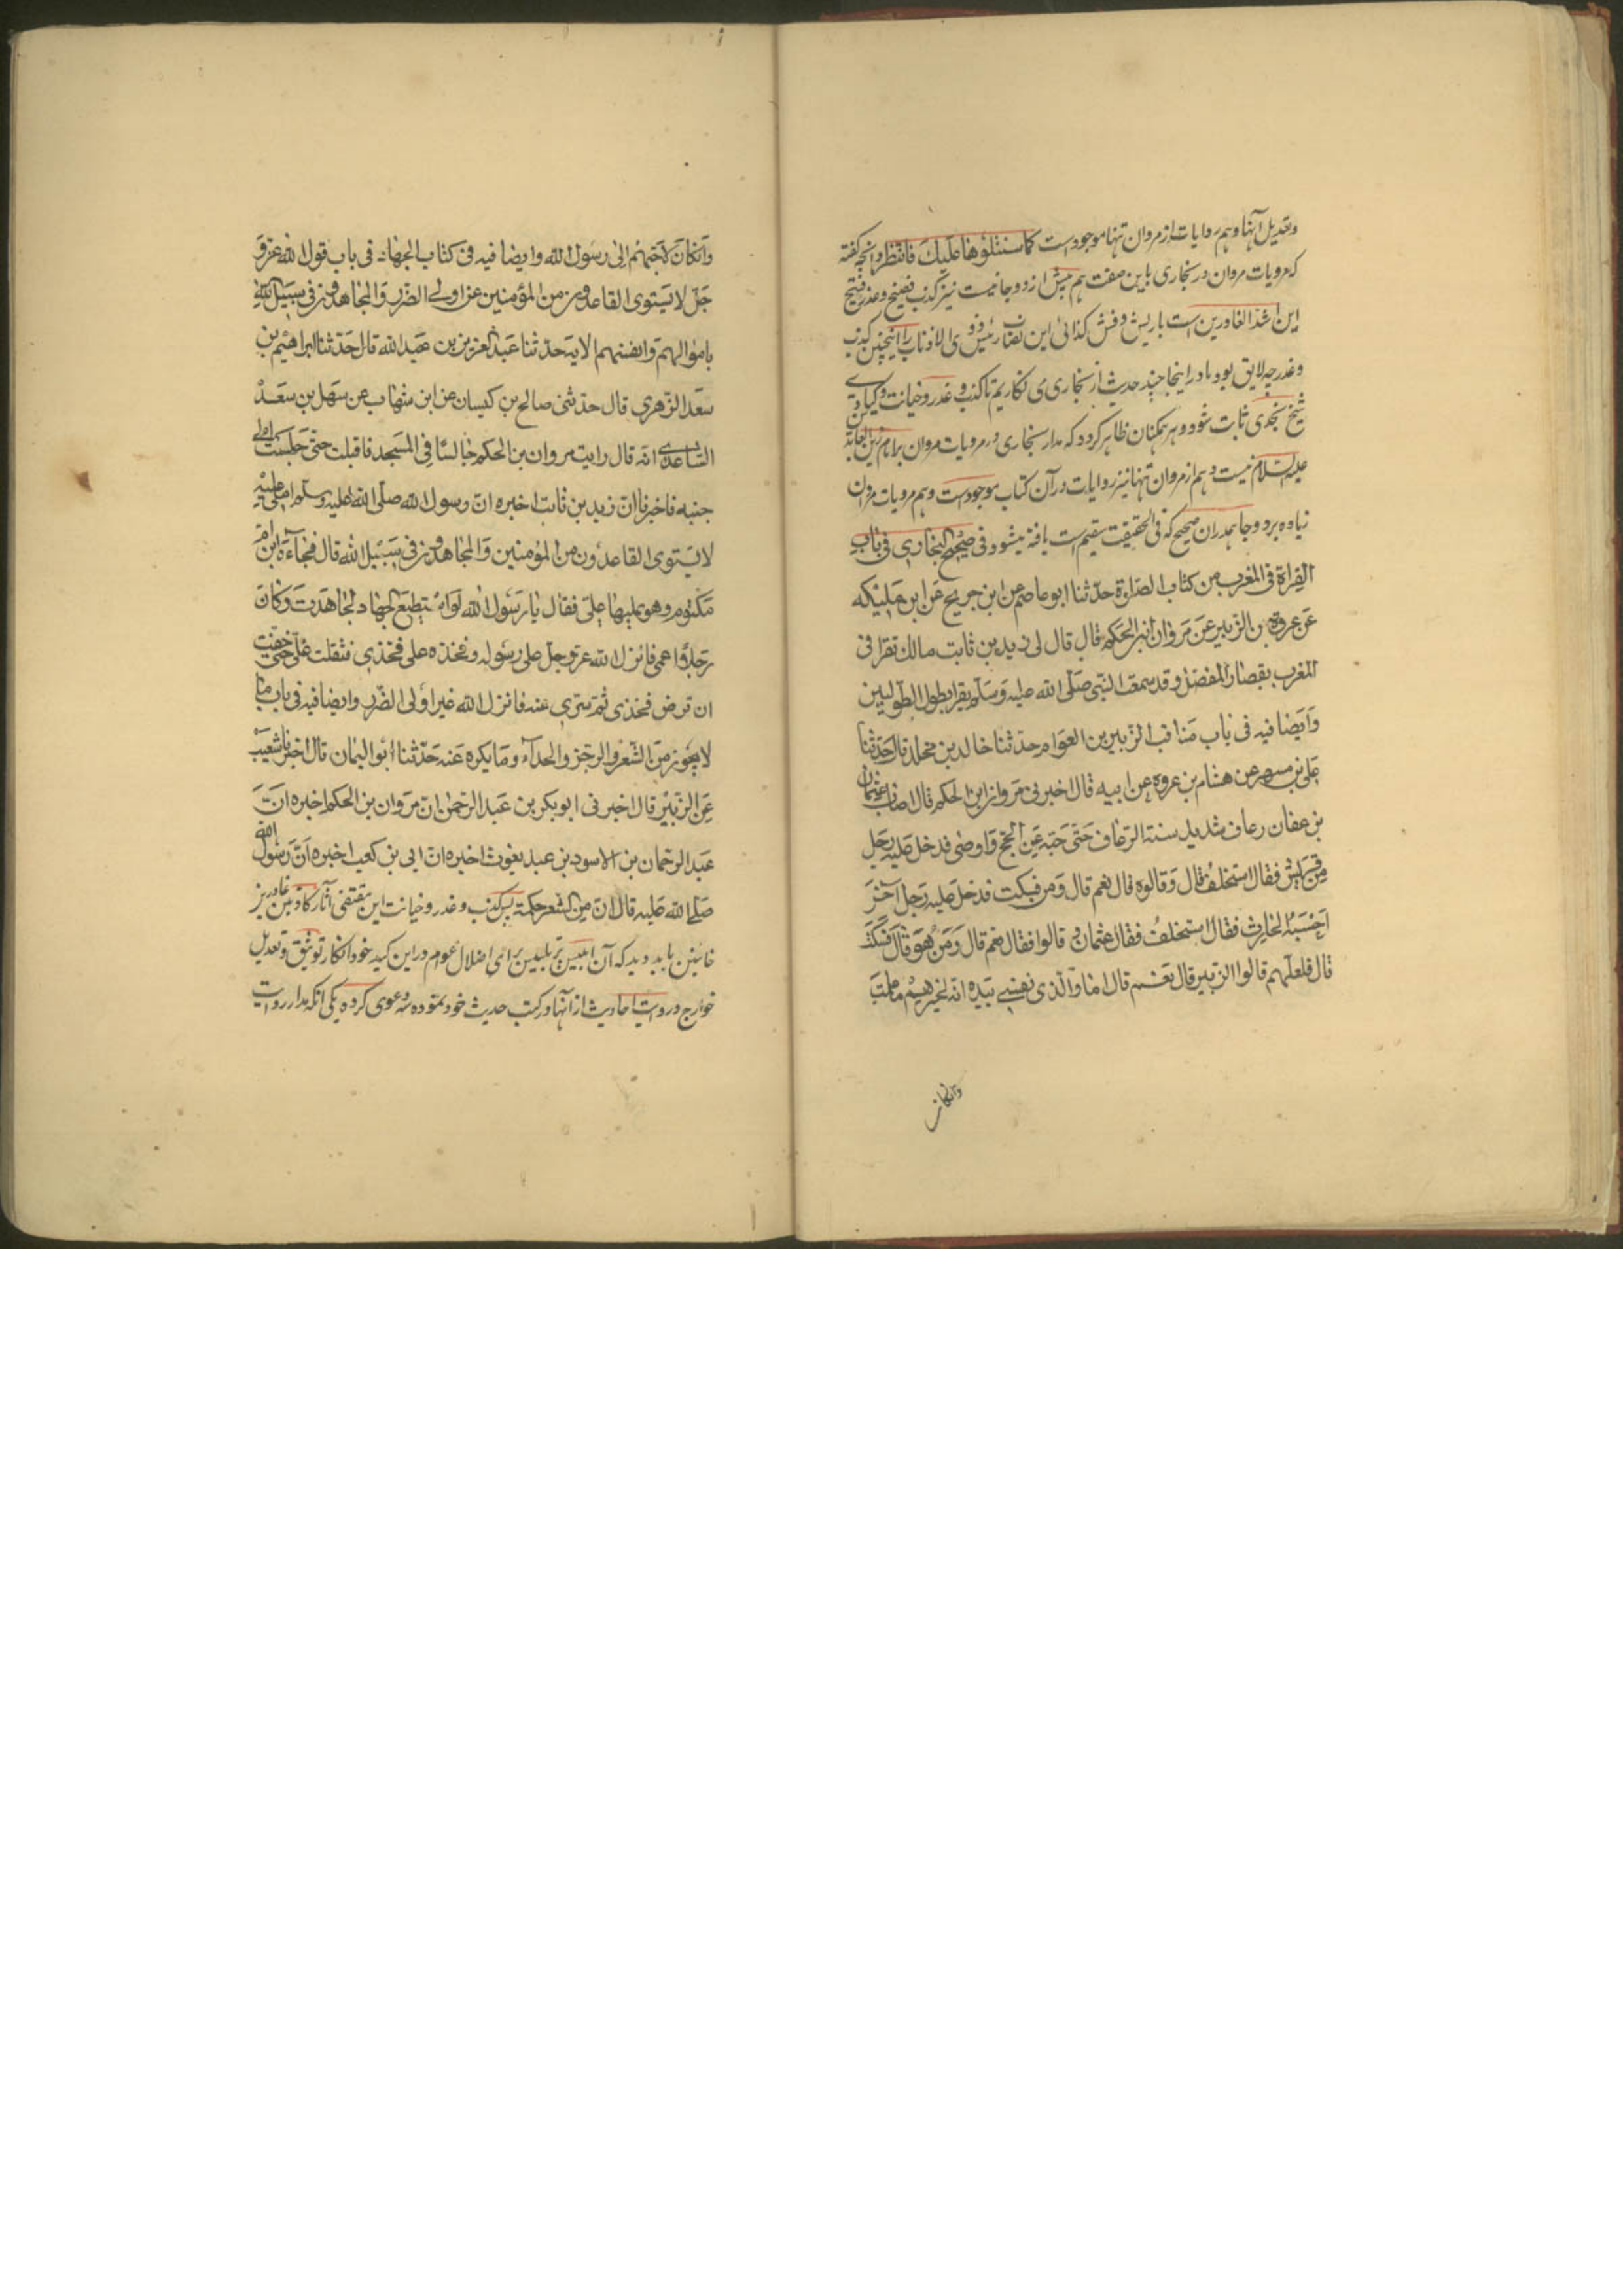 وتعدیل آنها وهم روایات از مروان تنها موجود است كما سنتلوها علیك فانتظر وانچه گفته
که مرویات مروان در بخاری باین صفت هم بیش از دو جا نیست نیز کذب فضیح وغدر قبیح
این اشد الغادرین است با ریش وفش کذائی این را اینچنین کذب
وغدر چه لایق بود ما در اینجا چند حدیث از بخاری می نگاریم تا کذب وغدر وخیانت وکیادی
شیخ نجدی ثابت شود وبر همکنان ظاهر گردد که مدار بخاری در مرویات مروان بر امام زین العابدین
علیه السلام نیست وهم از مروان تنها نیز روایات در آن کتاب موجود است وهم مرویات مروان
زیاده بر دو جا بمدران صحیح که فی الحقیقت سقیم است یافته میشود فی صحیح البخاری فی باب
القراة فی المغرب من کتاب الصلوة حدثنا ابو عاصم عن ابن جریح عن ابن ملیکه
عن عروة بن الزبیر عن مروان ابن الحکم قال قال لی زید بن ثابت مالك تقرا فی
المغرب بقصار المفصل وقد سمعت النبی صلی الله علیه وسلم یقرا بطول الطولیین
وایضا فیه فی باب مناقب الزبیر بن العوام حدثنا خالد بن مخلد قال حدثنا
علی بن مسهر عن هشام بن عروه عن ابیه قال اخبرنی مروان ابن الحکم قال اصاب عثمان
بن عفان رعاف شدید سنة الرعاف حتی حبته عن الحج واوصی فدخل علیه رجل
من قریش فقال استخلف قال وقالوه قال نعم قال ومن فسکت فدخل علیه رجل آخر
احسبه الحارث فقال استخلف فقال عثمان وقالوا فقال نعم قال ومن هو قال فسکت
قال فلعلهم قالوا الزبیر قال نعم قال اما والذی نفسی بیده انه لخیرهم ما علمت
وانکان
وانکان لاحبهم الی رسول الله وایضا فیه فی کتاب الجهاد فی باب قول الله عز و
جل لا یستوی القاعدون من المؤمنین غیر اولی الضرر والمجاهدون فی سبیل الله
باموالهم وانفسهم الایة حدثنا عبد العزیز بن عبد الله قال حدثنا ابراهیم بن
سعد الزهری قال حدثنی صالح بن کیسان عن ابن شهاب عن سهل بن سعد
الساعدی انه قال رایت مروان بن الحکم جالسا فی المسجد فاقبلت حتی جلست الی
جنبه فاخبرنا ان زید بن ثابت اخبره ان رسول الله صلی الله علیه وسلم املی علیه
لا یستوی القاعدون من المؤمنین والمجاهدون فی سبیل الله قال فجاءه ابن ام
مکتوم وهو یملیها علی فقال یا رسول الله لو استطیع الجهاد لجاهدت وکان
رجلا اعمی فانزل الله عز وجل علی رسوله وفخذه علی فخذی فثقلت علی حتی خفت
ان ترض فخذی ثم سری عنه فانزل الله غیر اولی الضرر وایضا فیه فی باب ما
لا یجوز من الشعر والرجز والحداء وما یکره عنه حدثنا ابو الیمان قال اخبرنا شعیب
عن الزبیر قال اخبرنی ابو بکر بن عبد الرحمن ان مروان بن الحکم اخبره ان
عبد الرحمان بن الاسود بن عبد یغوث اخبره ان ابی بن کعب اخبره ان رسول الله
صلی الله علیه قال ان من الشعر حکمة پس کذب وغدر وخیانت این مقتفی آثار کاذبین غادرین
خائنین باید دید که آن ابلیس پر تلبیس برای اضلال عوام در این کید خود انکار توثیق وتعدیل
خوارج وروایت احادیث از آنها در کتب حدیث خود نموده سه دعوی کرده یکی انکه مدار روایت